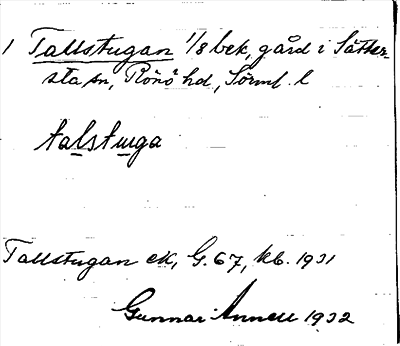 1 Tallstugan 1/8 bek, gård i Sätter-
sta sn, Rönö hd., Sörml. l
talstuga
Tallstugan ek, G. 67, kb. 1931
Gunnar Annell 1932